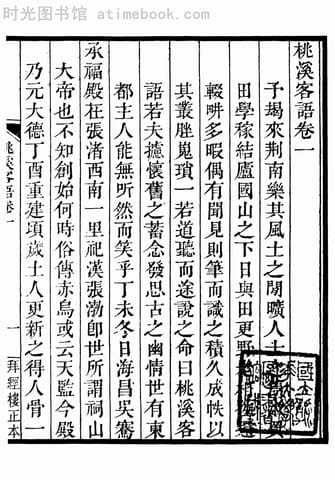 时光图书馆 - atimebook.com
桃溪客語卷一
予朅來荆南樂其風土之閒曠人士
田學稼結廬國山之下日與田更野
輟畊多暇偶有聞見則筆而識之積久成帙以
其叢脞嵬瑣一若道聽而途說之命曰桃溪客
語若夫攄懷舊之蓄念發思古之幽情世有東
都主人能無听然而笑乎丁未冬日海昌吳騫
承福殿在張渚西南一里祀漢張渤卽世所謂祠山
大帝也不知創始何時俗傳赤烏或云天監今殿
乃元大德丁酉重建頃歲土人更新之得人骨一
桃溪客語卷一
一
拜經樓正本